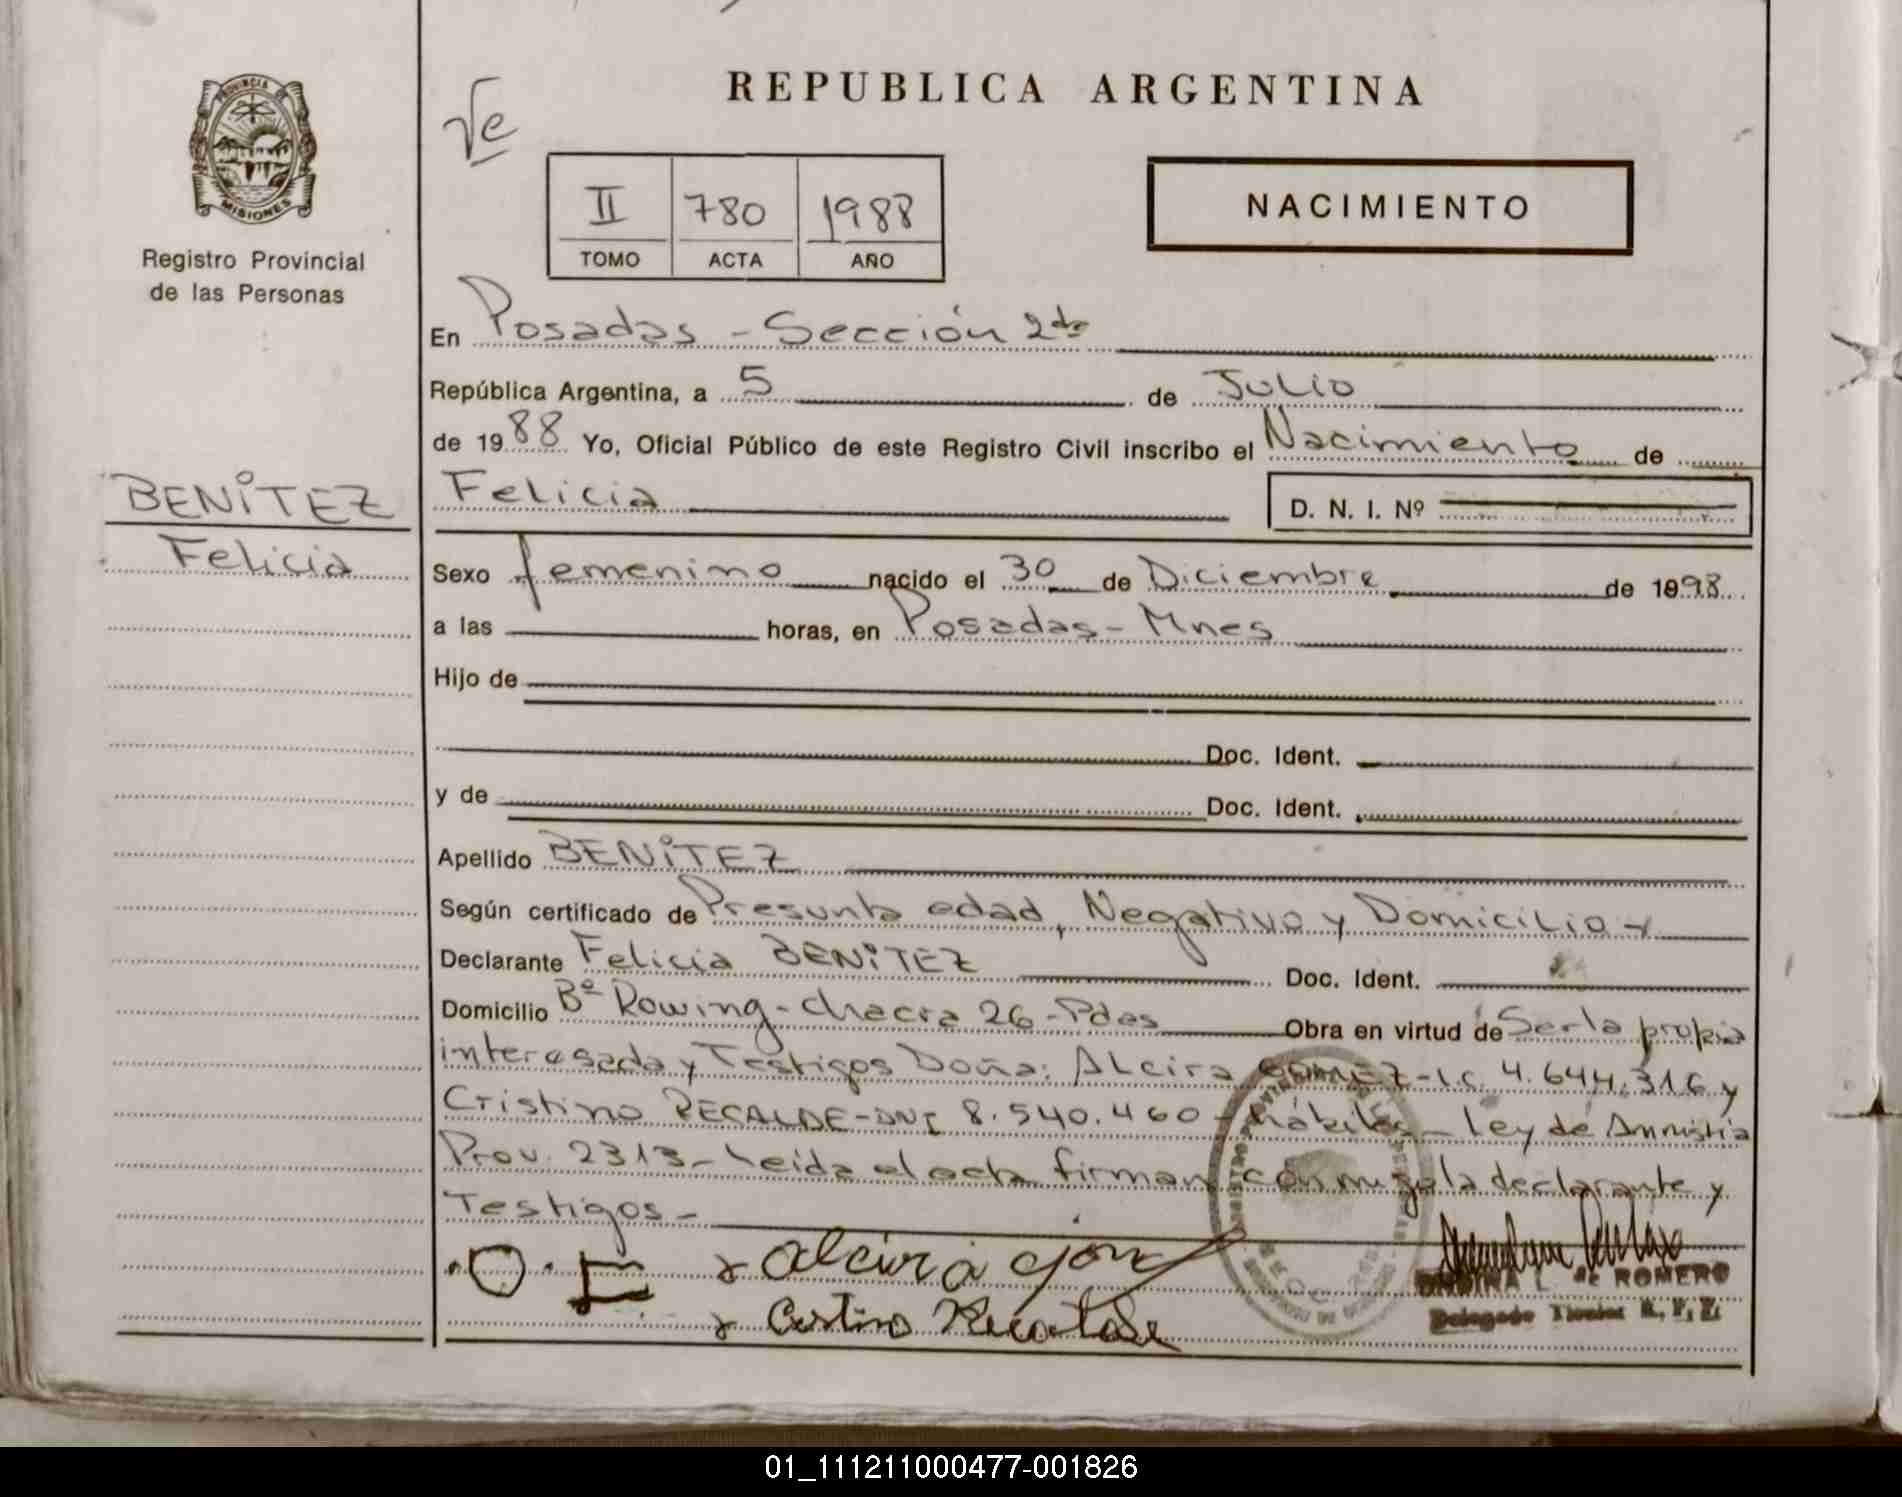 PROVINCIA DE
MISIONES
Registro Provincial
de las Personas
Ve
REPUBLICA ARGENTINA
II 780 1988
TOMO ACTA AÑO
NACIMIENTO
En Posadas - Sección 2da
República Argentina, a 5 de Julio
de 1988 Yo, Oficial Público de este Registro Civil inscribo el Nacimiento de
BENITEZ
Felicia
Felicia D. N. I. Nº
Sexo femenino nacido el 30 de Diciembre de 1898
a las horas, en Posadas - Mnes
Hijo de
Doc. Ident.
y de Doc. Ident.
Apellido BENITEZ
Según certificado de Presunta edad, Negativo y Domicilio -
Declarante Felicia BENITEZ Doc. Ident.
Domicilio Bº Rowing - chacra 26 - Pdas Obra en virtud de Ser la propia
interesada y Testigos Doña: Alcira GOMEZ - L.C. 4.644.316 y
Cristino RECALDE - DNI 8.540.460 - hábiles - Ley de Amnistia
Prov. 2313 - Leida el acta firman conmigo la declarante y
Testigos -
O. E
x Alcira
x Cristino Recalde
L. de ROMERO
Delegado
01_111211000477-001826